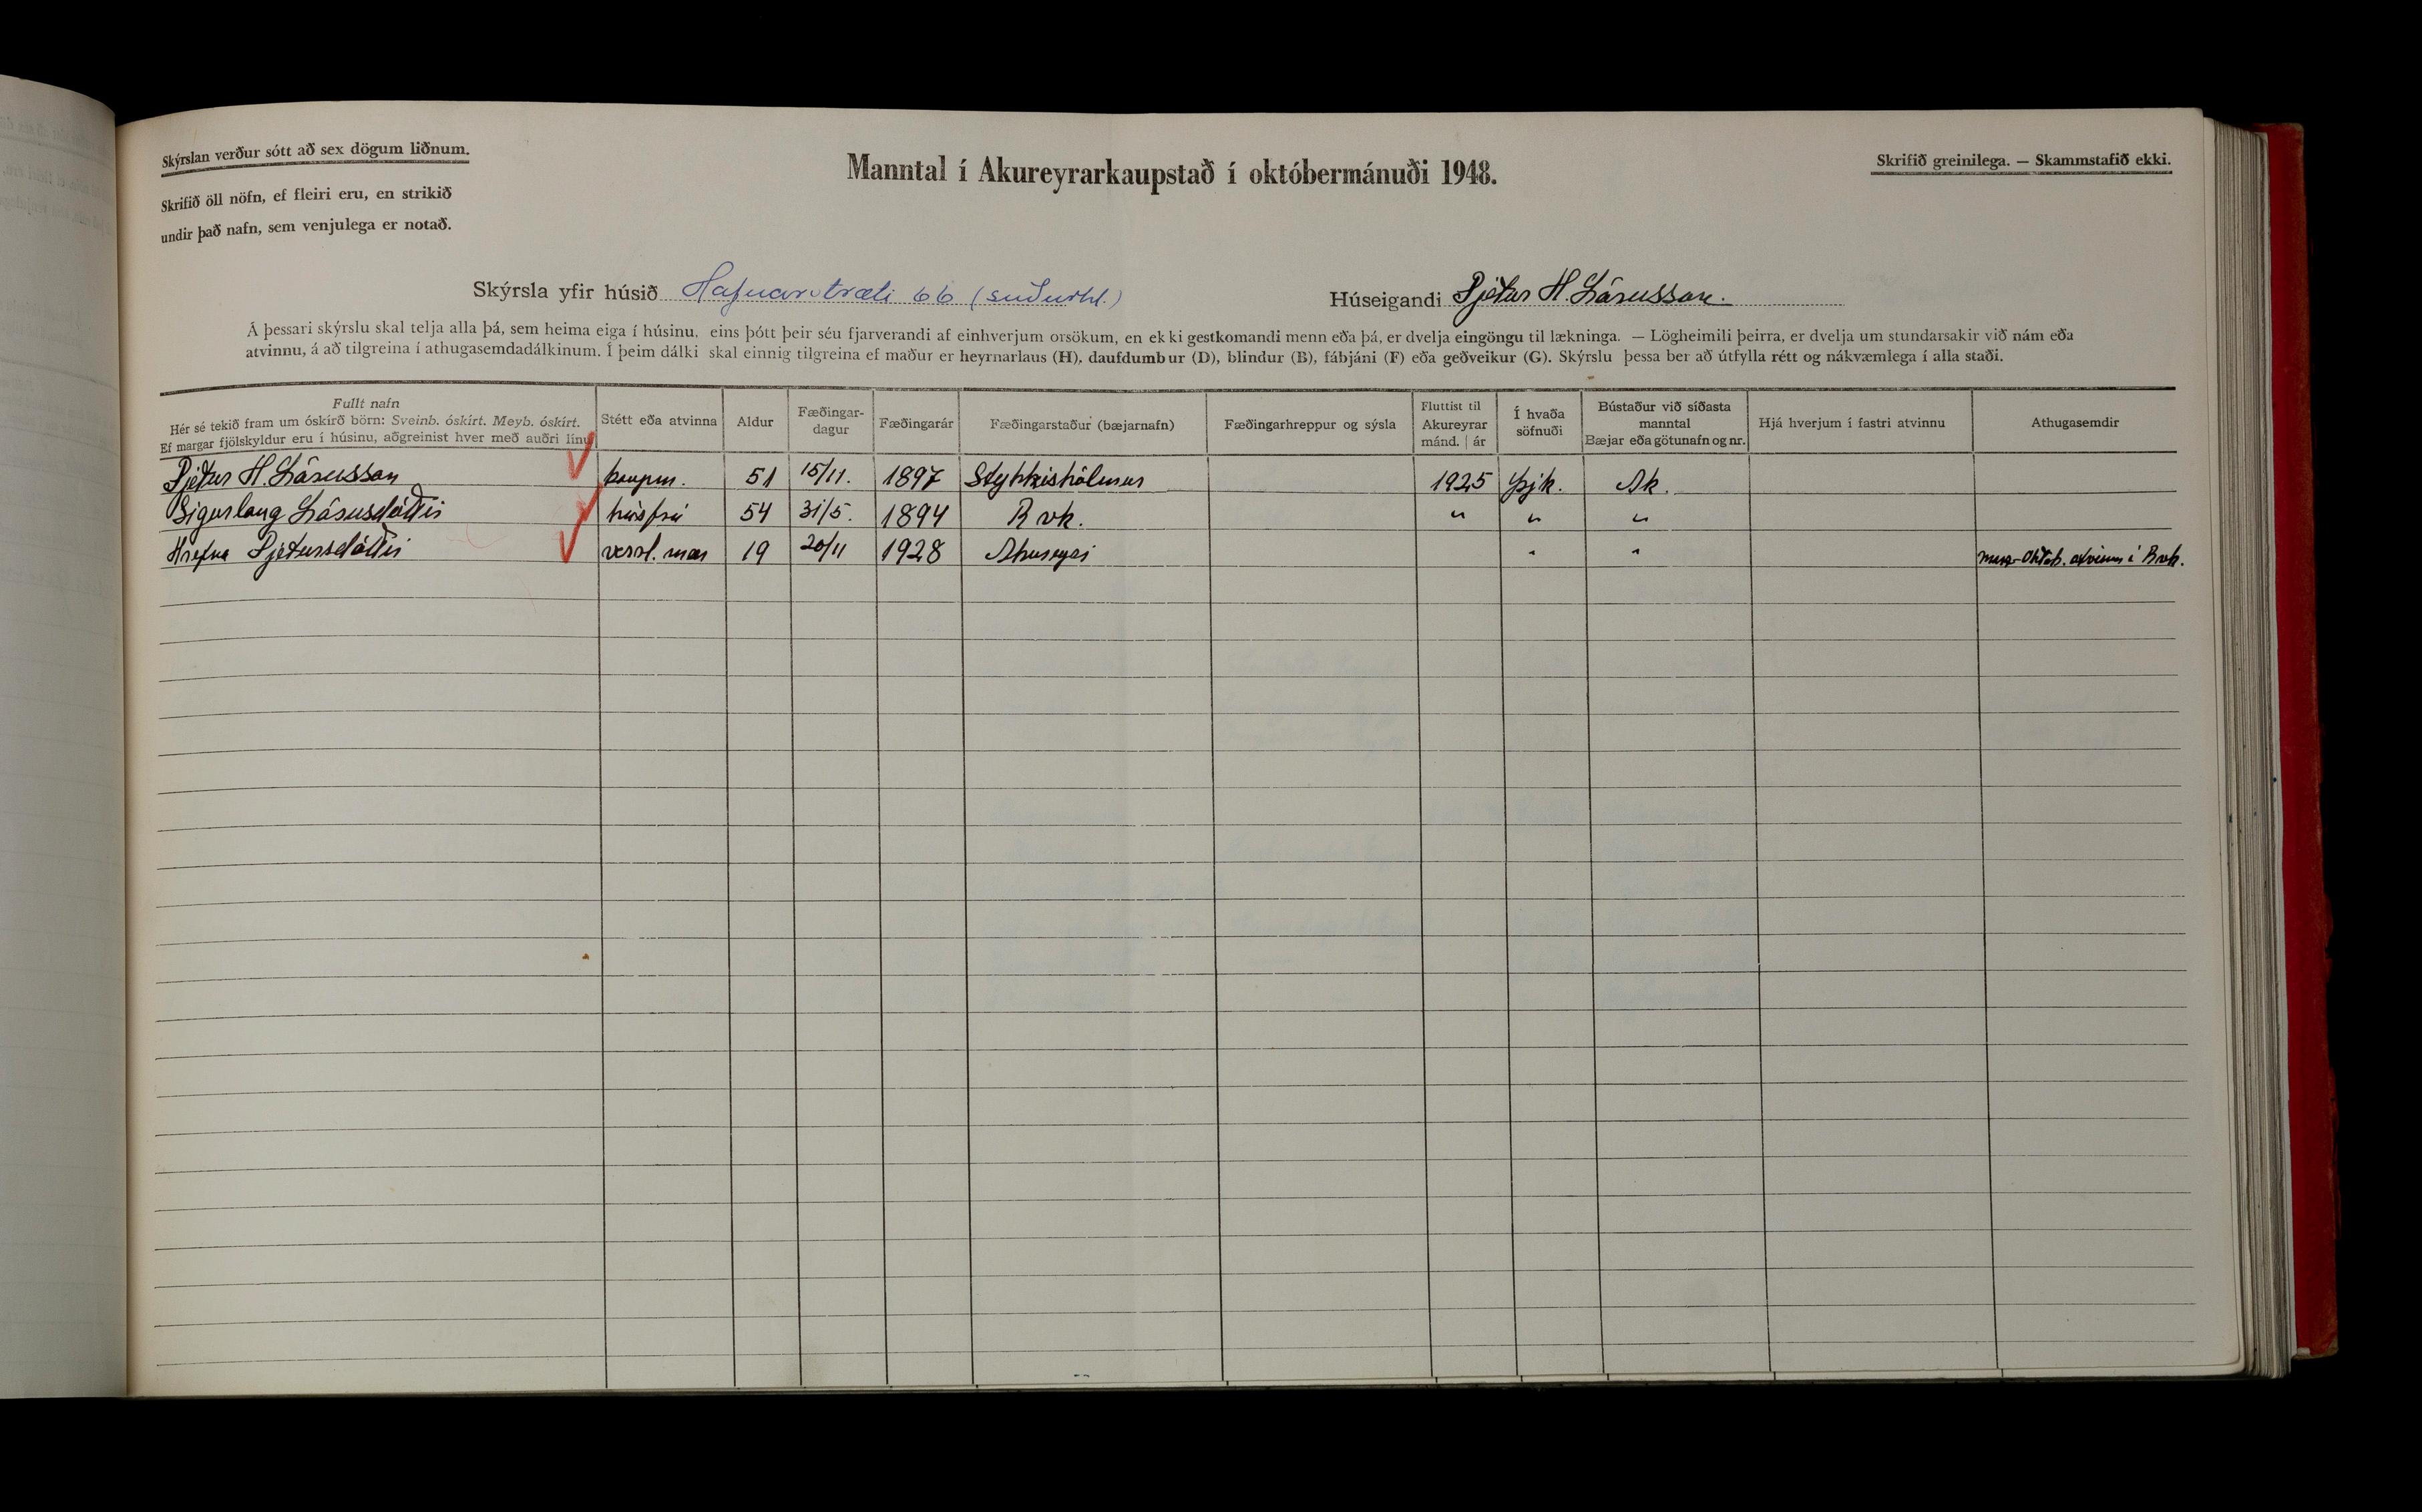 Skýrslan verður sótt að sex dögum liðnum.
Skrifið öll nöfn, ef fleiri eru, en strikið
undir það nafn, sem venjulega er notað.
Manntal í Akureyrarkaupstað í októbermánuði 1948.
Skrifið greinilega. — Skammstafið ekki.
Skýrsla yfir húsið Hafnarstræti 66 (suðurhl.)
Húseigandi Pjetur H. Lárusson.
Á þessari skýrslu skal telja alla þá, sem heima eiga í húsinu, eins þótt þeir séu fjarverandi af einhverjum orsökum, en ekki gestkomandi menn eða þá, er dvelja eingöngu til lækninga. — Lögheimili þeirra, er dvelja um stundarsakir við nám eða
atvinnu, á að tilgreina í athugasemdadálkinum. Í þeim dálki skal einnig tilgreina ef maður er heyrnarlaus (H), daufdumbur (D), blindur (B), fábjáni (F) eða geðveikur (G). Skýrslu þessa ber að útfylla rétt og nákvæmlega í alla staði.
Fullt nafn
Hér sé tekið fram um óskírð börn: Sveinb. óskírt. Meyb. óskírt.
Ef margar fjölskyldur eru í húsinu, aðgreinist hver með auðri línu
Stétt eða atvinna
Aldur
Fæðingar-
dagur
Fæðingarár
Fæðingarstaður (bæjarnafn)
Fæðingarhreppur og sýsla
Fluttist til
Akureyrar
mánd. | ár
Í hvaða
söfnuði
Bústaður við síðasta
manntal
Bæjar eða götunafn og nr.
Hjá hverjum í fastri atvinnu
Athugasemdir
Pjetur H. Lárusson kaupm. 51 15/11. 1897 Stykkishólmur 1925 þjk. Ak.
Sigurlaug Lárusdóttir húsfrú 54 31/5. 1894 Rvk. " " "
Hrefna Pjetursdóttir verzl. mær 19 20/11 1928 Akureyri " " - Októb. atvinnu í Rvk.